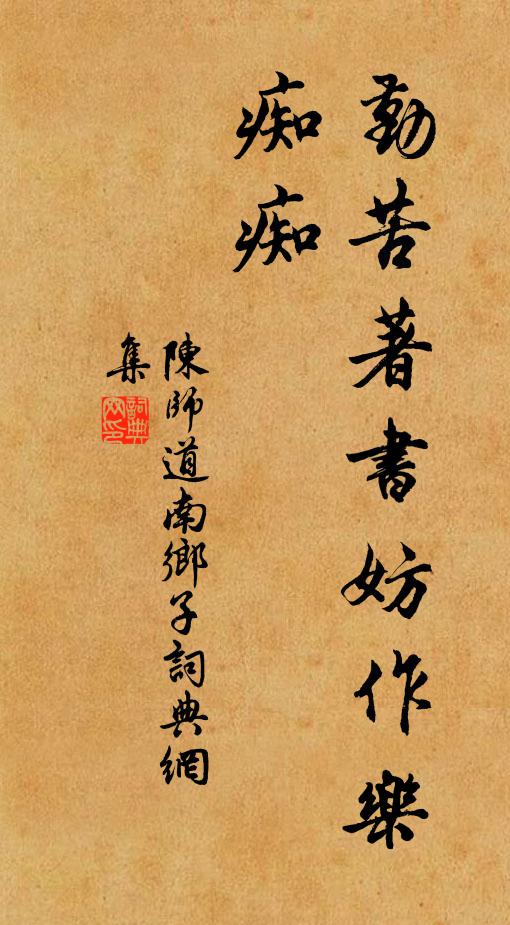 勤苦著書妨作樂
痴痴
陳師道南鄉子詞典網
集
詞典
网印